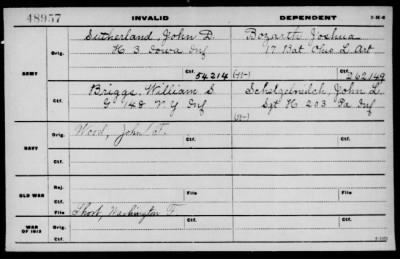 48957
INVALID
DEPENDENT
3-H-6
ARMY
Orig.
Sutherland, John D.
K 3 Iowa Inf
Ctf.
54214
Bozarth, Joshua
17 Bat Ohio L. Art
Ctf.
262149
Ctf.
Briggs, William S.
G 148 N Y Inf
John L.
Sgt K 203 Pa Inf
NAVY
Orig.
Wood, John T.
Ctf.
OLD WAR
Rej.
Ctf.
File
File
WAR OF 1812
Orig.
Short, Washington F.
Ctf.